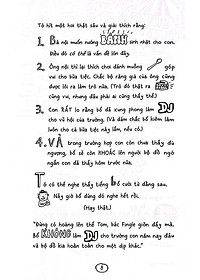 Tớ hít một hơi thật sâu và giải thích rằng:
1. Bà nội muốn nướng BÁNH sinh nhật cho con.
Điều đó có thể là vấn đề lớn đây.
2. Ông nội thì lại thích chơi đánh muỗng góp
vui cho bữa tiệc. Chắc bộ răng giả của ông cũng
được lôi ra làm trò nữa. (Trò đó thật ra
cũng vui, nhưng đâu phải ai cũng thấy thế.)
3. Con RẤT lo rằng bố đã xung phong làm DJ
cho vũ hội của trường. (Và dám chắc bố kiêm làm
luôn cho cả bữa tiệc này lắm, nếu có.)
4. VÀ trong trường hợp con còn chưa thấy đủ
ngượng, bố sẽ còn KHOÁC lên người bộ đồ ngộ
ngẫn con đã thấy hôm trước nữa.
Tớ có thể nghe thấy tiếng bố cười từ đằng sau.
Nãy giờ bố đứng đó nghe hết rồi.
(Hay thật.)
"Đừng có hoảng lên thế Tom, bác Fingle giỡn đấy mà.
Bố KHÔNG làm DJ cho trường con năm nay đâu
và bộ đồ kia hoàn toàn cho một dịp khác."
8